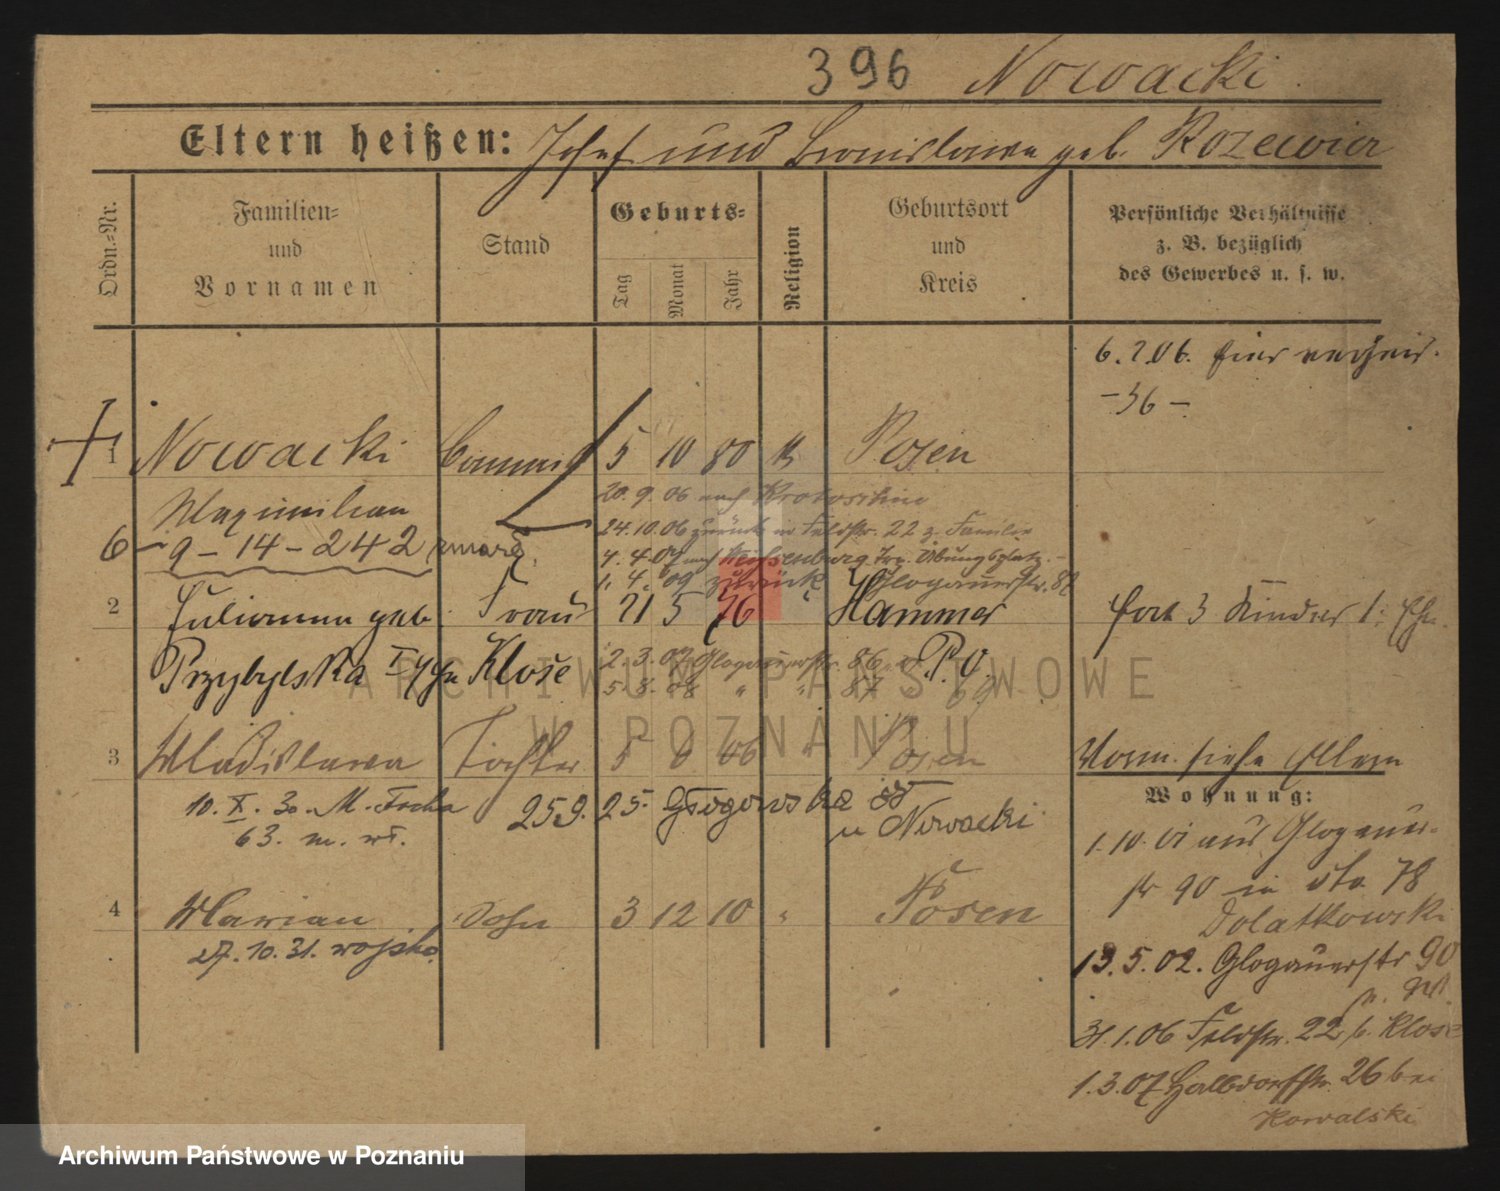 396 Nowacki
Eltern heißen: Josef und Bronislawa geb. Rozewicz
Ordn.-Nr.
Familien-
und
Vornamen
Stand
Geburts-
Tag
Monat
Jahr
Religion
Geburtsort
und
Kreis
Persönliche Verhältnisse
z. B. bezüglich
des Gewerbes u. s. w.
6.2.06. hier verheir.
-36-
1 Nowacki Commis 5 10 80 k Posen
Maximilian
20.9.06 nach Krotoschin
24.10.06 zurück in Feldstr. 22 z. Familie
6 -9-14-242 zmarł
4.4.07 nach Weissenburg Trp. Übungsplatz
1. 4. 09 zurück Glogauerstr. 82
2 Julianna geb. Frau 21 5 76 Hammer
hat 3 Kinder 1. Ehe
Przybylska Klose P.O.
2.3.07 Glogauerstr. 86
5.8.08 " " 87
3 Wladislawa Tochter 5 6 06 " Posen
Vorm. siehe Eltern
Wohnung:
10. X. 30. M. Focha 259. 25. Głogowska
63. m. wł.
u Nowacki
1.10.01 aus Glogauer-
str 90 in dto 78
Dolatkowski
4 Marian Sohn 3 12 10 " Posen
27.10.31. wojsko
13.5.02. Glogauerstr 90
31.1.06 Feldstr. 22 b. Klose
1.3.07 Halbdorfstr. 26 bei
Kowalski
ARCHIWUM PAŃSTWOWE
W POZNANIU
Archiwum Państwowe w Poznaniu